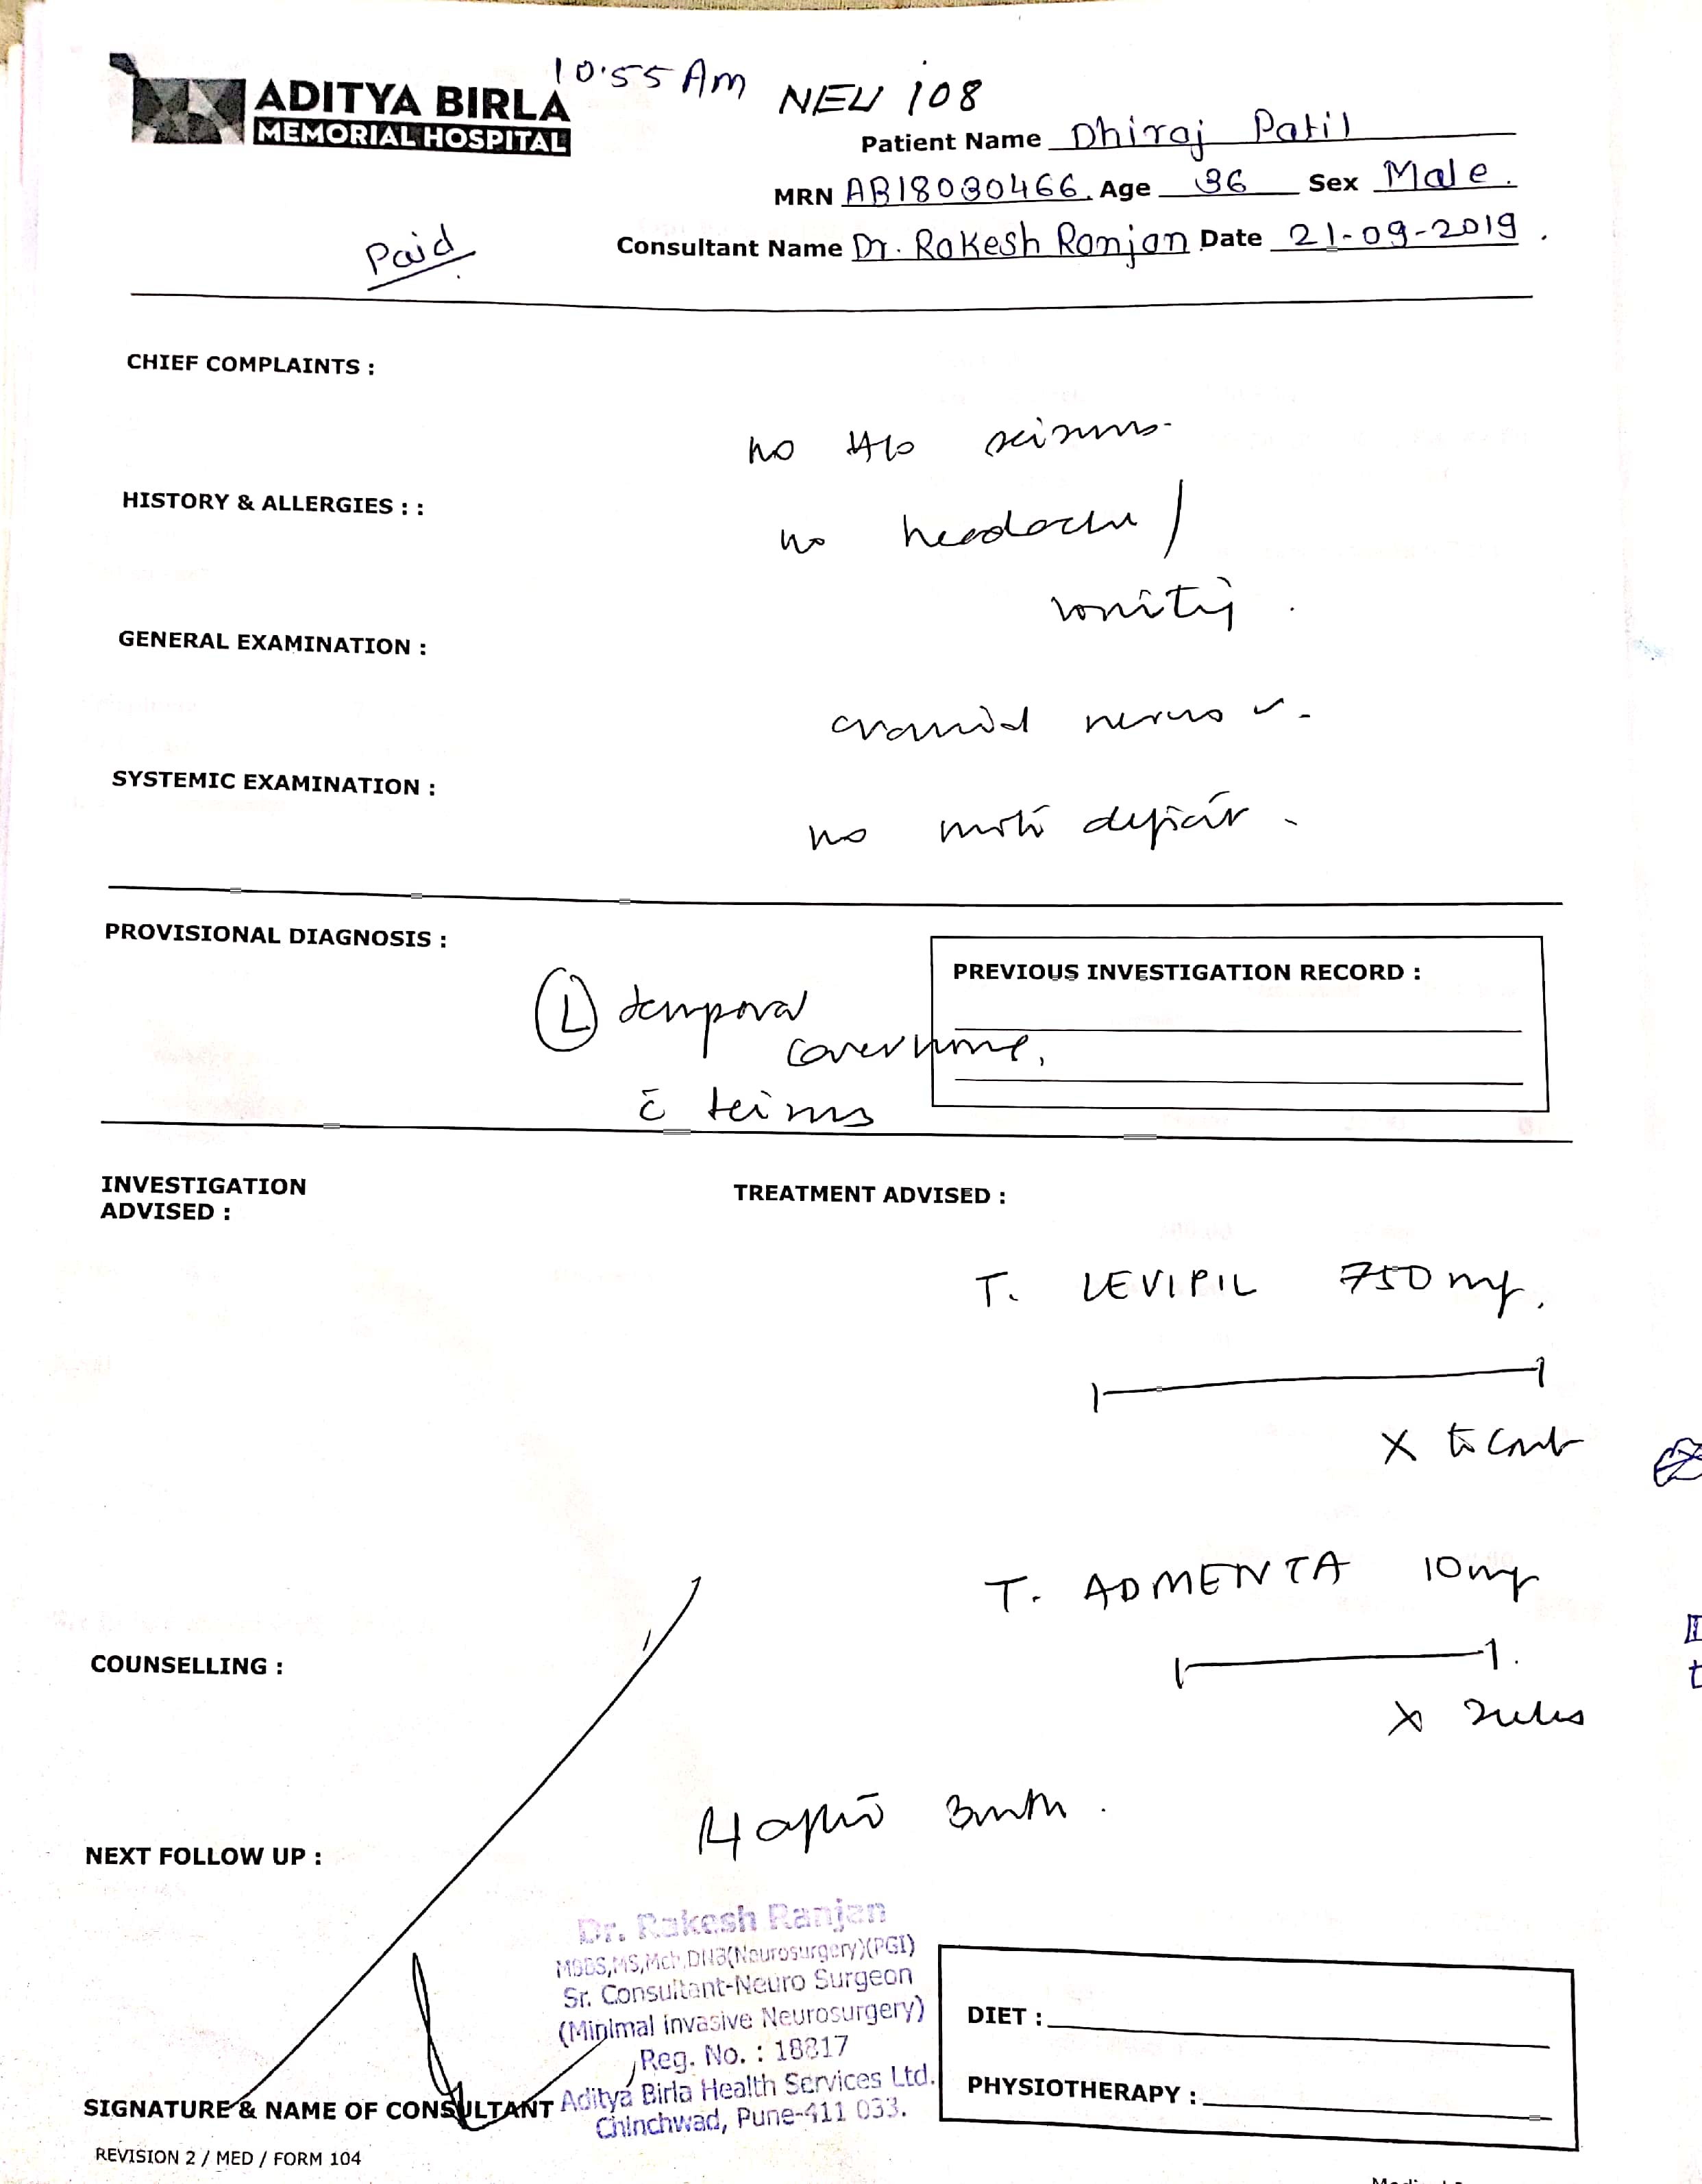 10.55 Am
NEU 108
ADITYA BIRLA
MEMORIAL HOSPITAL
Patient Name Dhiraj Patil
MRN AB18030466. Age 36 Sex Male.
Paid
Consultant Name Dr. Rakesh Ranjan Date 21-09-2019.
CHIEF COMPLAINTS :
no H/o
HISTORY & ALLERGIES : :
no headache /
vomiting.
GENERAL EXAMINATION :
cranial nerves ✓ -
SYSTEMIC EXAMINATION :
no motor deficit -
PROVISIONAL DIAGNOSIS :
PREVIOUS INVESTIGATION RECORD :
(L) temporal
c̄
INVESTIGATION
ADVISED :
TREATMENT ADVISED :
T. LEVIPIL 750 mg.
1 ——— 1
X to cont
T. ADMENTA 10mg
1 ——— 1.
X
COUNSELLING :
after 3 month.
NEXT FOLLOW UP :
Dr. Rakesh Ranjan
MBBS,MS,Mch,DNB(Neurosurgery)(PGI)
Sr. Consultant-Neuro Surgeon
(Minimal invasive Neurosurgery)
Reg. No. : 18817
Aditya Birla Health Services Ltd.
Chinchwad, Pune-411 033.
DIET :
PHYSIOTHERAPY :
SIGNATURE & NAME OF CONSULTANT
REVISION 2 / MED / FORM 104